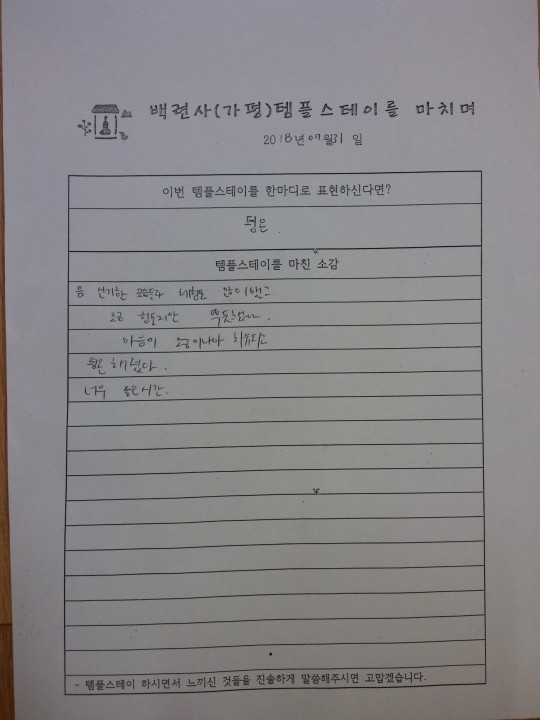 백련사(가평)템플스테이를 마치며
2018년 07월 31 일
이번 템플스테이를 한마디로 표현하신다면?
평온.
템플스테이를 마친 소감
음 신기한 체험도 많이했고
조금 힘들지만 뿌듯했다.
마음이 조금이나마 치유되고
평온해졌다.
너무 좋은시간.
- 템플스테이 하시면서 느끼신 것들을 진솔하게 말씀해주시면 고맙겠습니다.